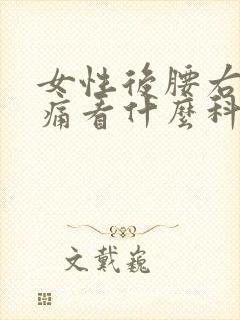 女性後腰右
痛看什麼科
文戴巍